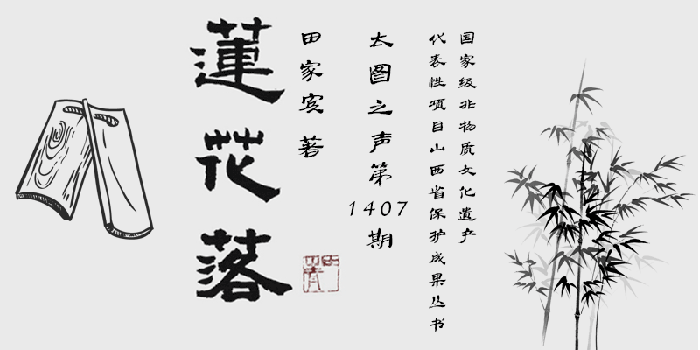 国家级非物质文化遗产
代表性项目山西省保护成果丛书
太图之声第1407期
田家宾 著
蓮花落